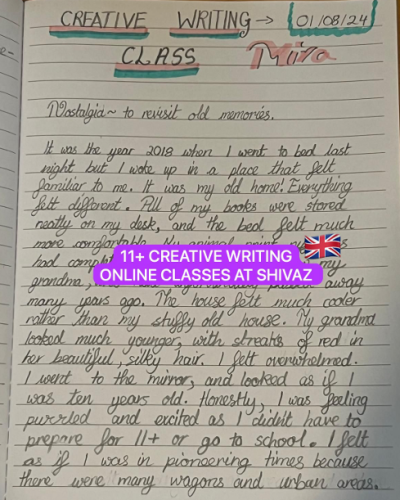 CREATIVE WRITING → 01/08/24
CLASS
Nostalgia~ to revisit old memories.
It was the year 2018 when I went to bed last
night but I woke up in a place that felt
familiar to me. It was my old home! Everything
felt different. All of my books were stored
neatly on my desk, and the bed felt much
more comfortable. My animal print
had my
grandma, away
11+ CREATIVE WRITING
ONLINE CLASSES AT SHIVAZ
many years ago. The house felt much cooler
rather than my stuffy old house. My grandma
looked much younger, with streaks of red in
her beautiful, silky hair. I felt overwhelmed.
I went to the mirror, and looked as if I
was ten years old. Honestly, I was feeling
puzzled and excited as I didn't have to
prepare for 11+ or go to school. I felt
as if I was in pioneering times because
there were many wagons and urban areas.